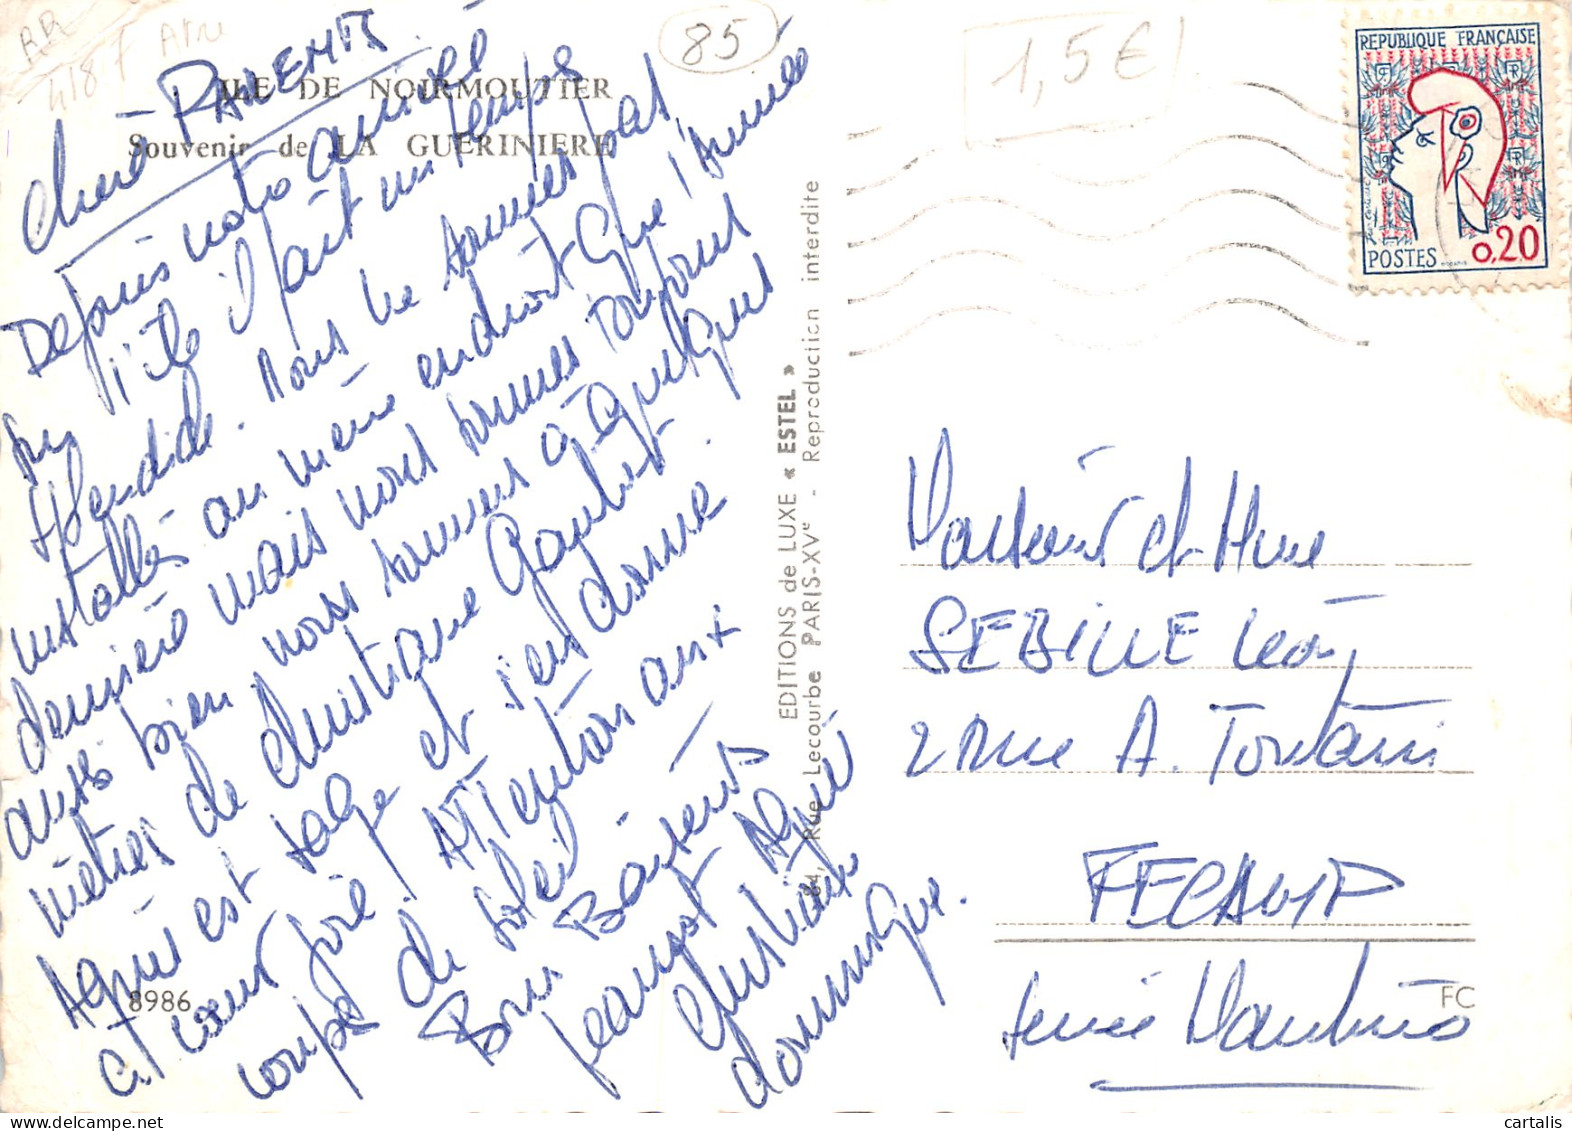 85
1,5€
ILE DE NOIRMOUTIER
Souvenir de LA GUERINIERE
Chers PARENTS
Depuis notre arrivée
sur l'île il fait un temps
splendide. Nous ne sommes pas
installés au même endroit que l'année
dernière mais nous sommes toujours
aussi bien nous sommes à quelques
mètres de dominique Goubert.
Agnès est sage et s'en donne
à cœur joie. Attention aux
coups de soleil
Bons Baisers
Jeannot Agnès
Christiane
dominique.
8986
EDITIONS de LUXE « ESTEL »
84, Rue Lecourbe PARIS-XVe - Reproduction interdite
REPUBLIQUE FRANÇAISE
POSTES 0,20
Monsieur et Mme
SEBILLE Léon
2 rue A. Toutain
FECAMP
Seine Maritime
FC
cartalis.com